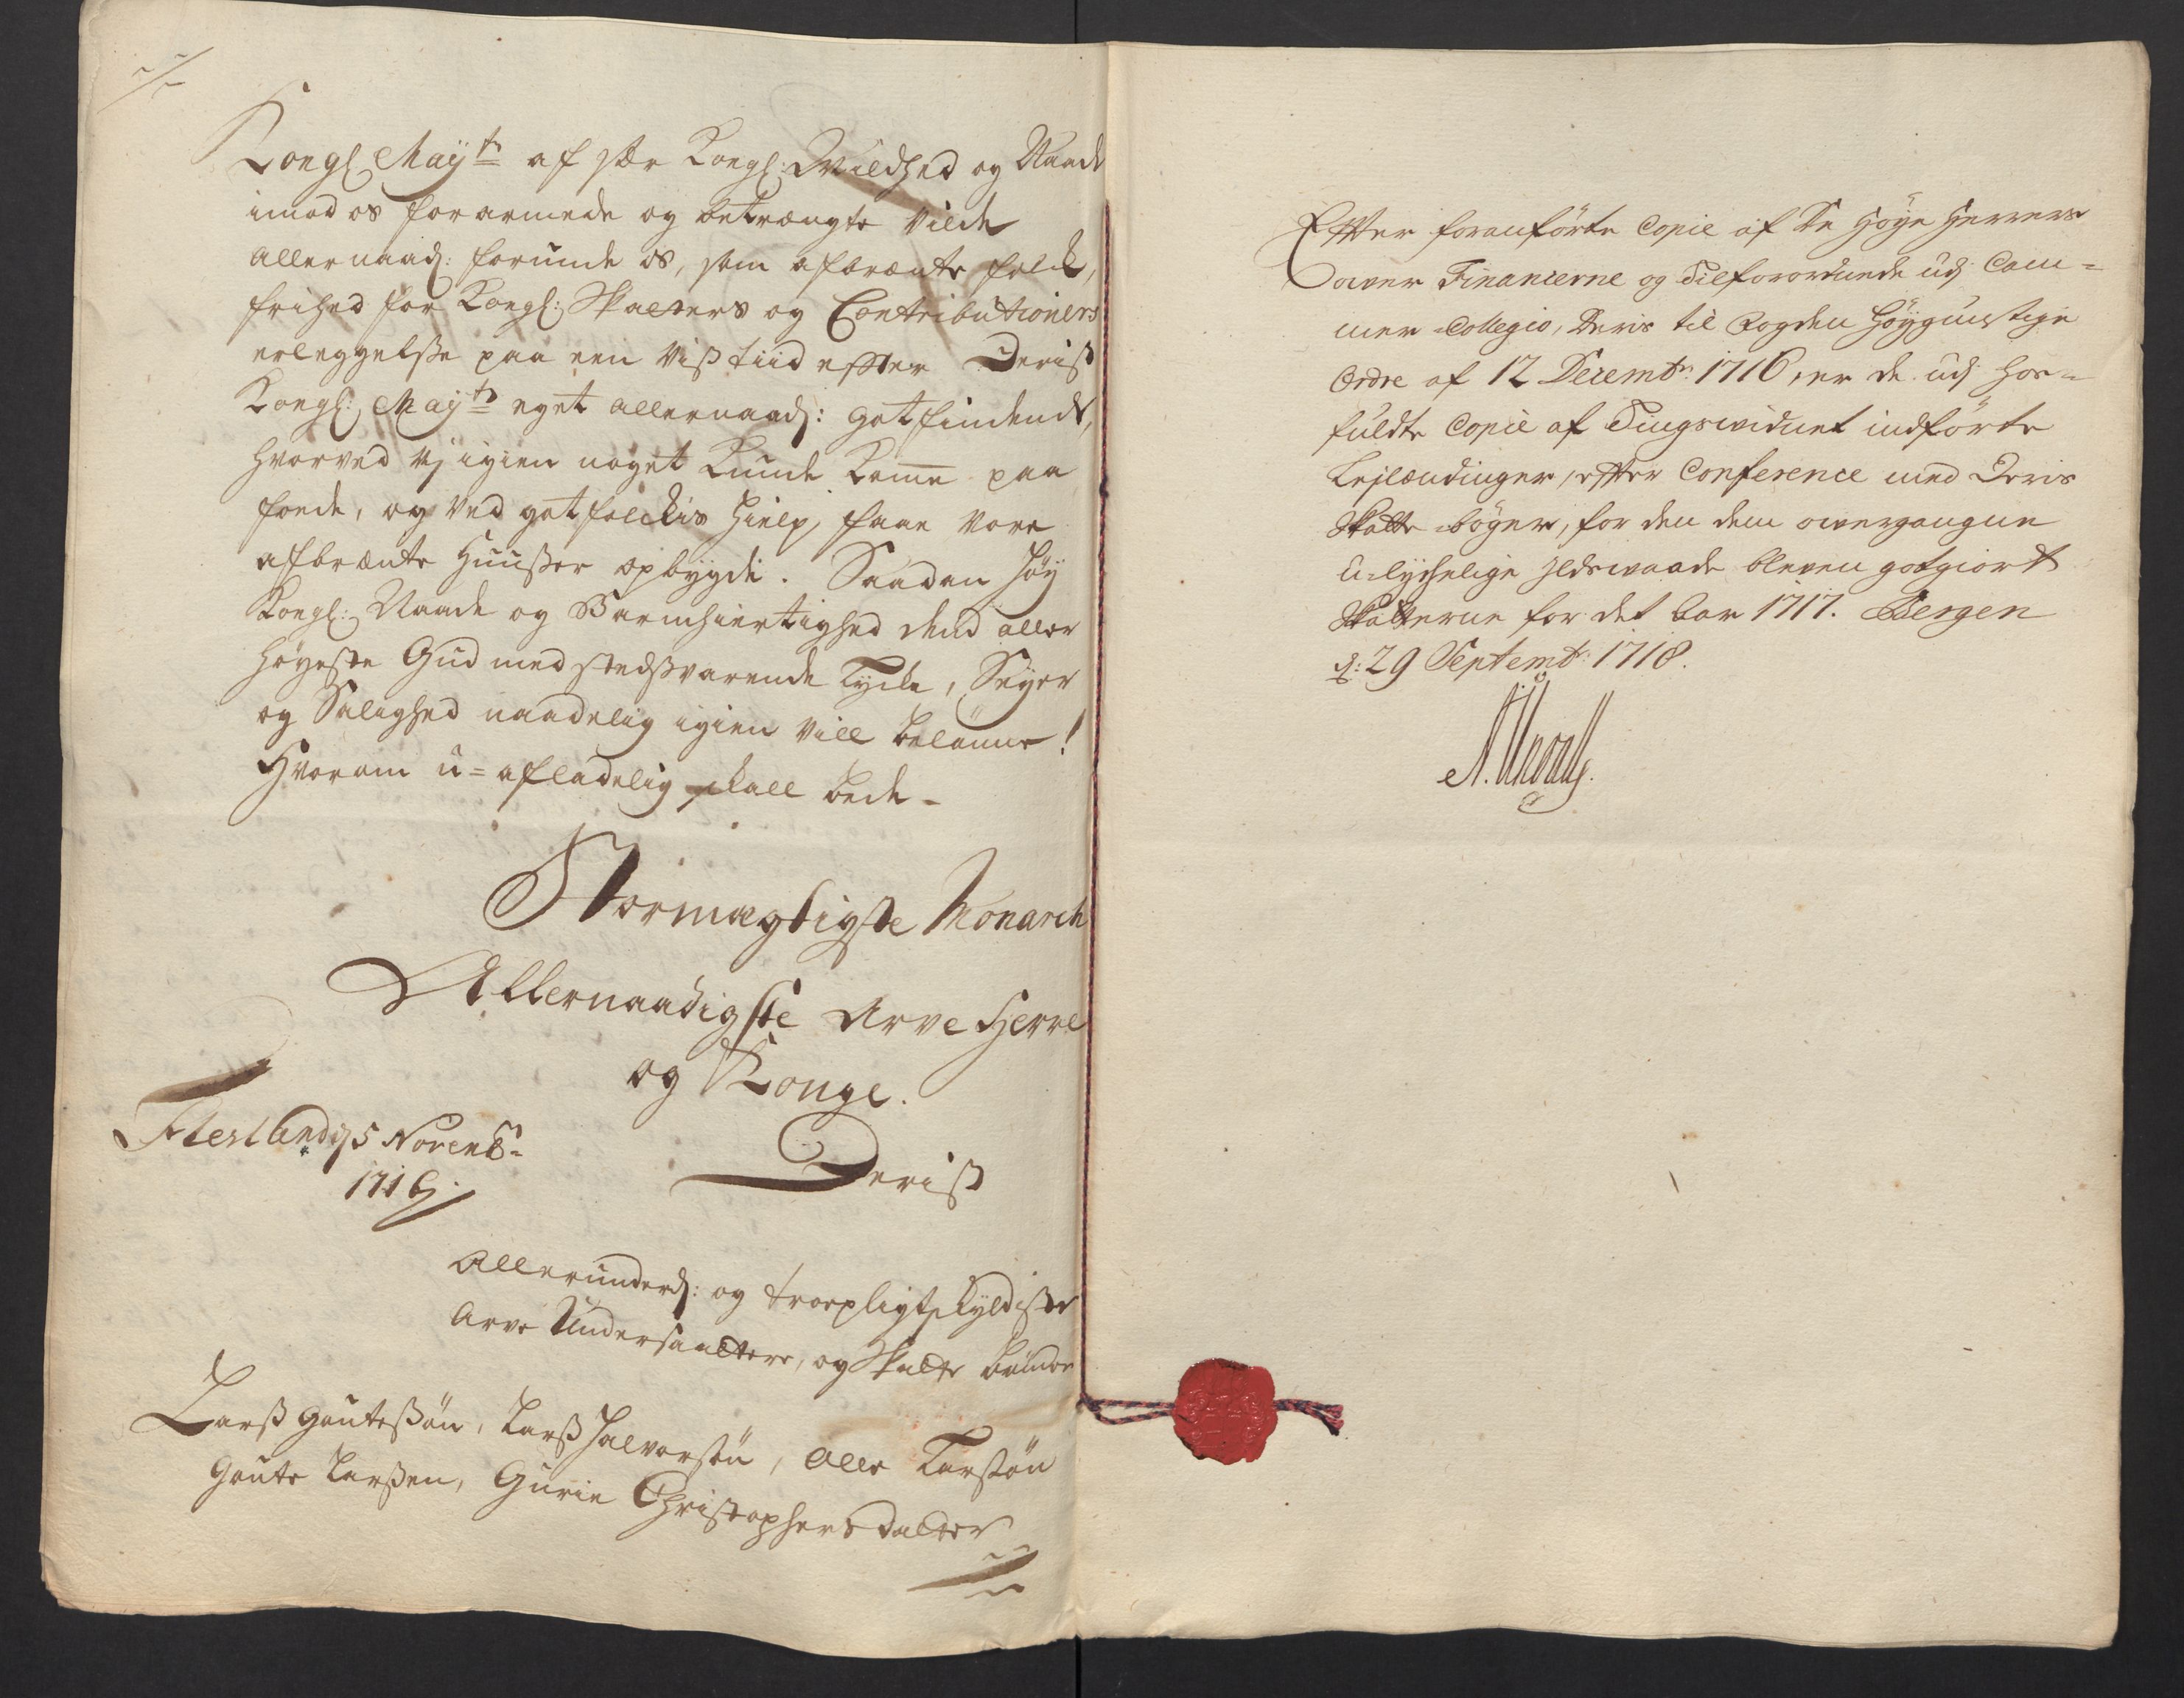 Kongl Mayts af stor Kongl: Mildhed og Naade
imod os forarmede og betrængte vilde
allernaad: forunde os, som afbrænte folck,
frihed for Kongl: Skatters og Contributioners
erleggelsse paa een viss tiid efter Deriss
Kongl: Mayts eget allernaad: gotfindende,
hvorved vj igien noget kunde komme paa
fode, og ved got folckis hielp, faae vore
afbrænte Huusser opbygde. Saadan høy
Kongl: Naade og Barmhiertighed dend aller
høyeste Gud med stedssvarende Lycke, Seyer
og Salighed naadelig igien vill belønne!
Hvorom u=afladelig skall bede-
Stormægtigste Monarch
Allernaadigste Arve Herre
og Konge.
Flesland d 5 Novembr
1716.
Deriss
allerunderd: og troepligtskyldigste
Arve Undersaatter, og Skatte bønder
Larss Goutessøn, Larss Halvorssøn, Olle Larssøn
Goute Larssen, Gurie Christophersdatter
Effter foranførte Copie af De Høye Herrers
over Financerne og Tilforordnede udj Cam=
mer-Collegio, Deris til Fogden høygunstige
Ordre af 12 Decembr: 1716, er de udj hos=
fuldte Copie af Tingsvidnet indførte
Lejlændinger, effter Conference med Deris
Skatte-bøger, for den dem overgangne
u-lychelige Ildsvaade bleven gotgiort
Skatterne for det Aar 1717. Bergen
d: 29 Septemb: 1718.